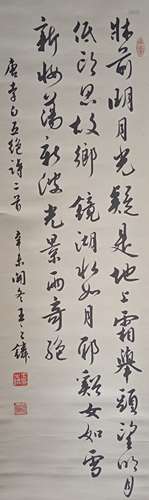 牀前明月光疑是地上霜舉頭望明月
低頭思故鄉鏡湖水如月耶谿女如雪
新妝蕩新波光景兩奇絕
唐李白五絕詩二首
辛未閏冬王之鏻